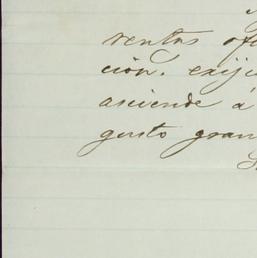 ventas ofi
ción. exiji
asciende á
gusto gran